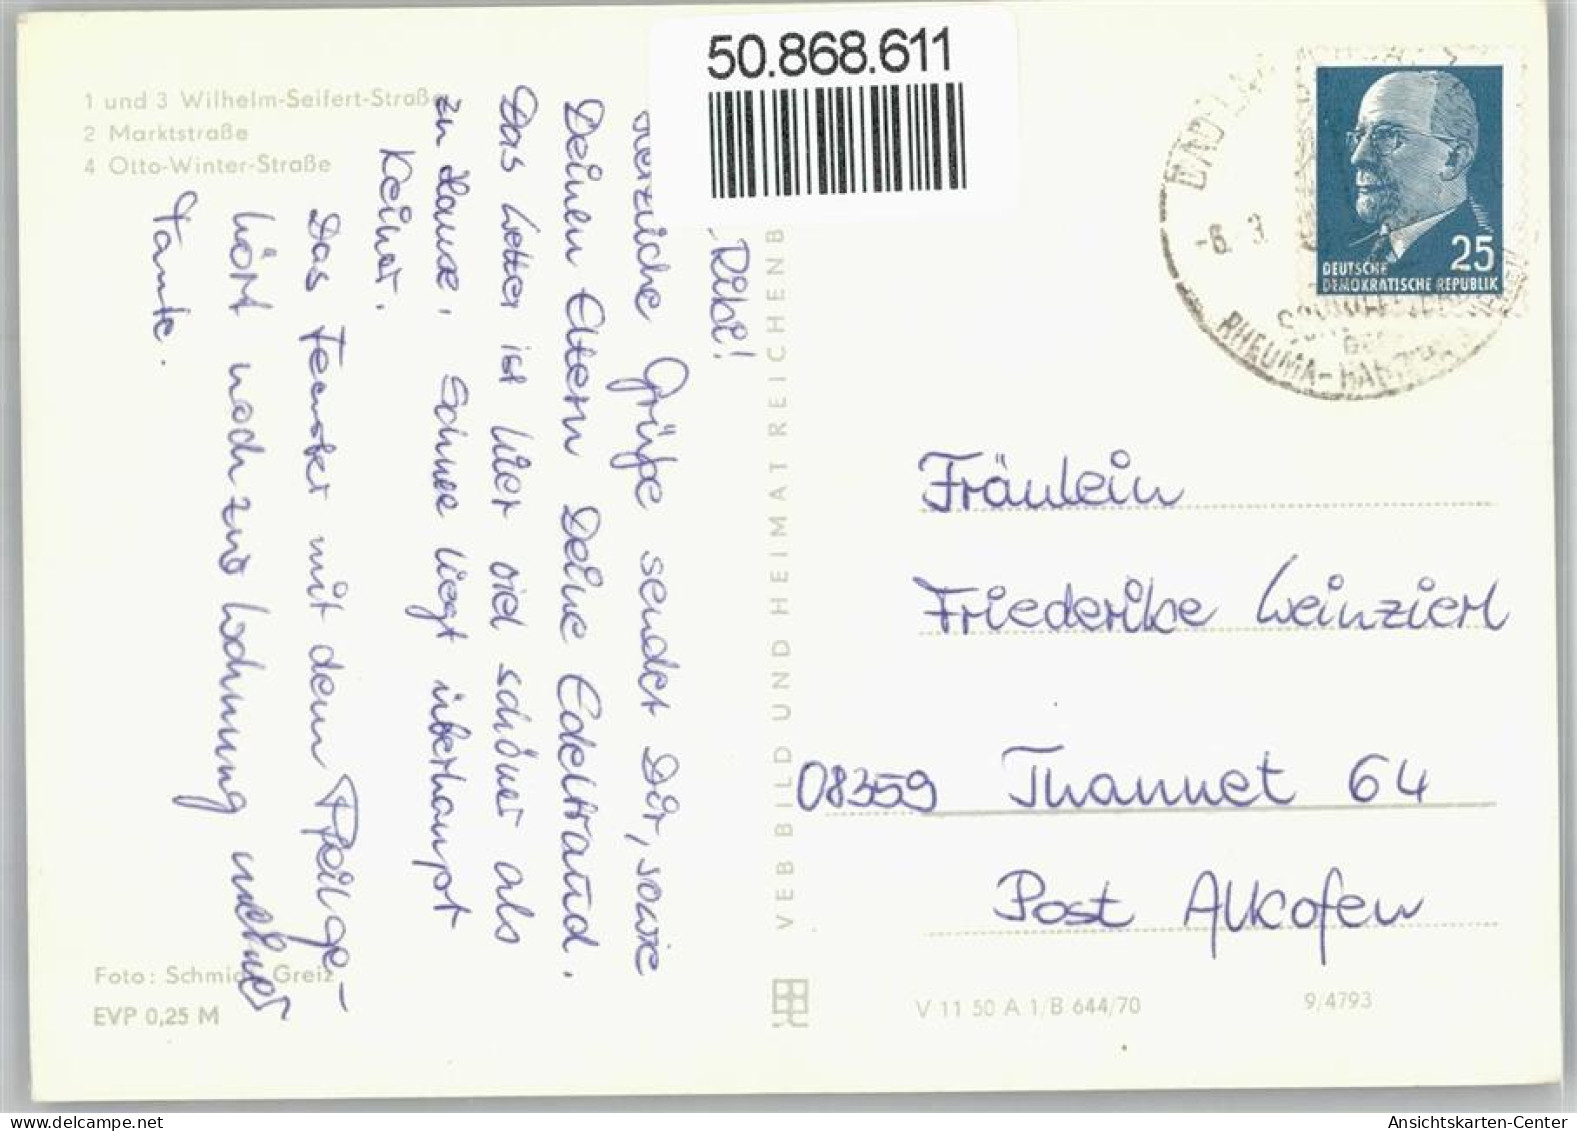 50.868.611
1 und 3 Wilhelm-Seifert-Straße
2 Marktstraße
4 Otto-Winter-Straße
Rikl!
Herzliche Grüße sendet Dir, sowie
Deinen Eltern Deine Edeltraud.
Das Wetter ist hier viel schöner als
zu Hause. Schnee liegt überhaupt
Keiner.
Das Fenster mit dem Pfeil ge-
hört noch zur Wohnung meiner
Tante.
Foto: Schmidt, Greiz
EVP 0,25 M
VEB BILD UND HEIMAT REICHENB
-6. 3
RHEUMA-
25
DEUTSCHE
DEMOKRATISCHE REPUBLIK
Fräulein
Friederike Weinzierl
08359 Thannet 64
Post Alkofen
V 11 50 A 1/B 644/70
9/4793
www.delcampe.net
Ansichtskarten-Center